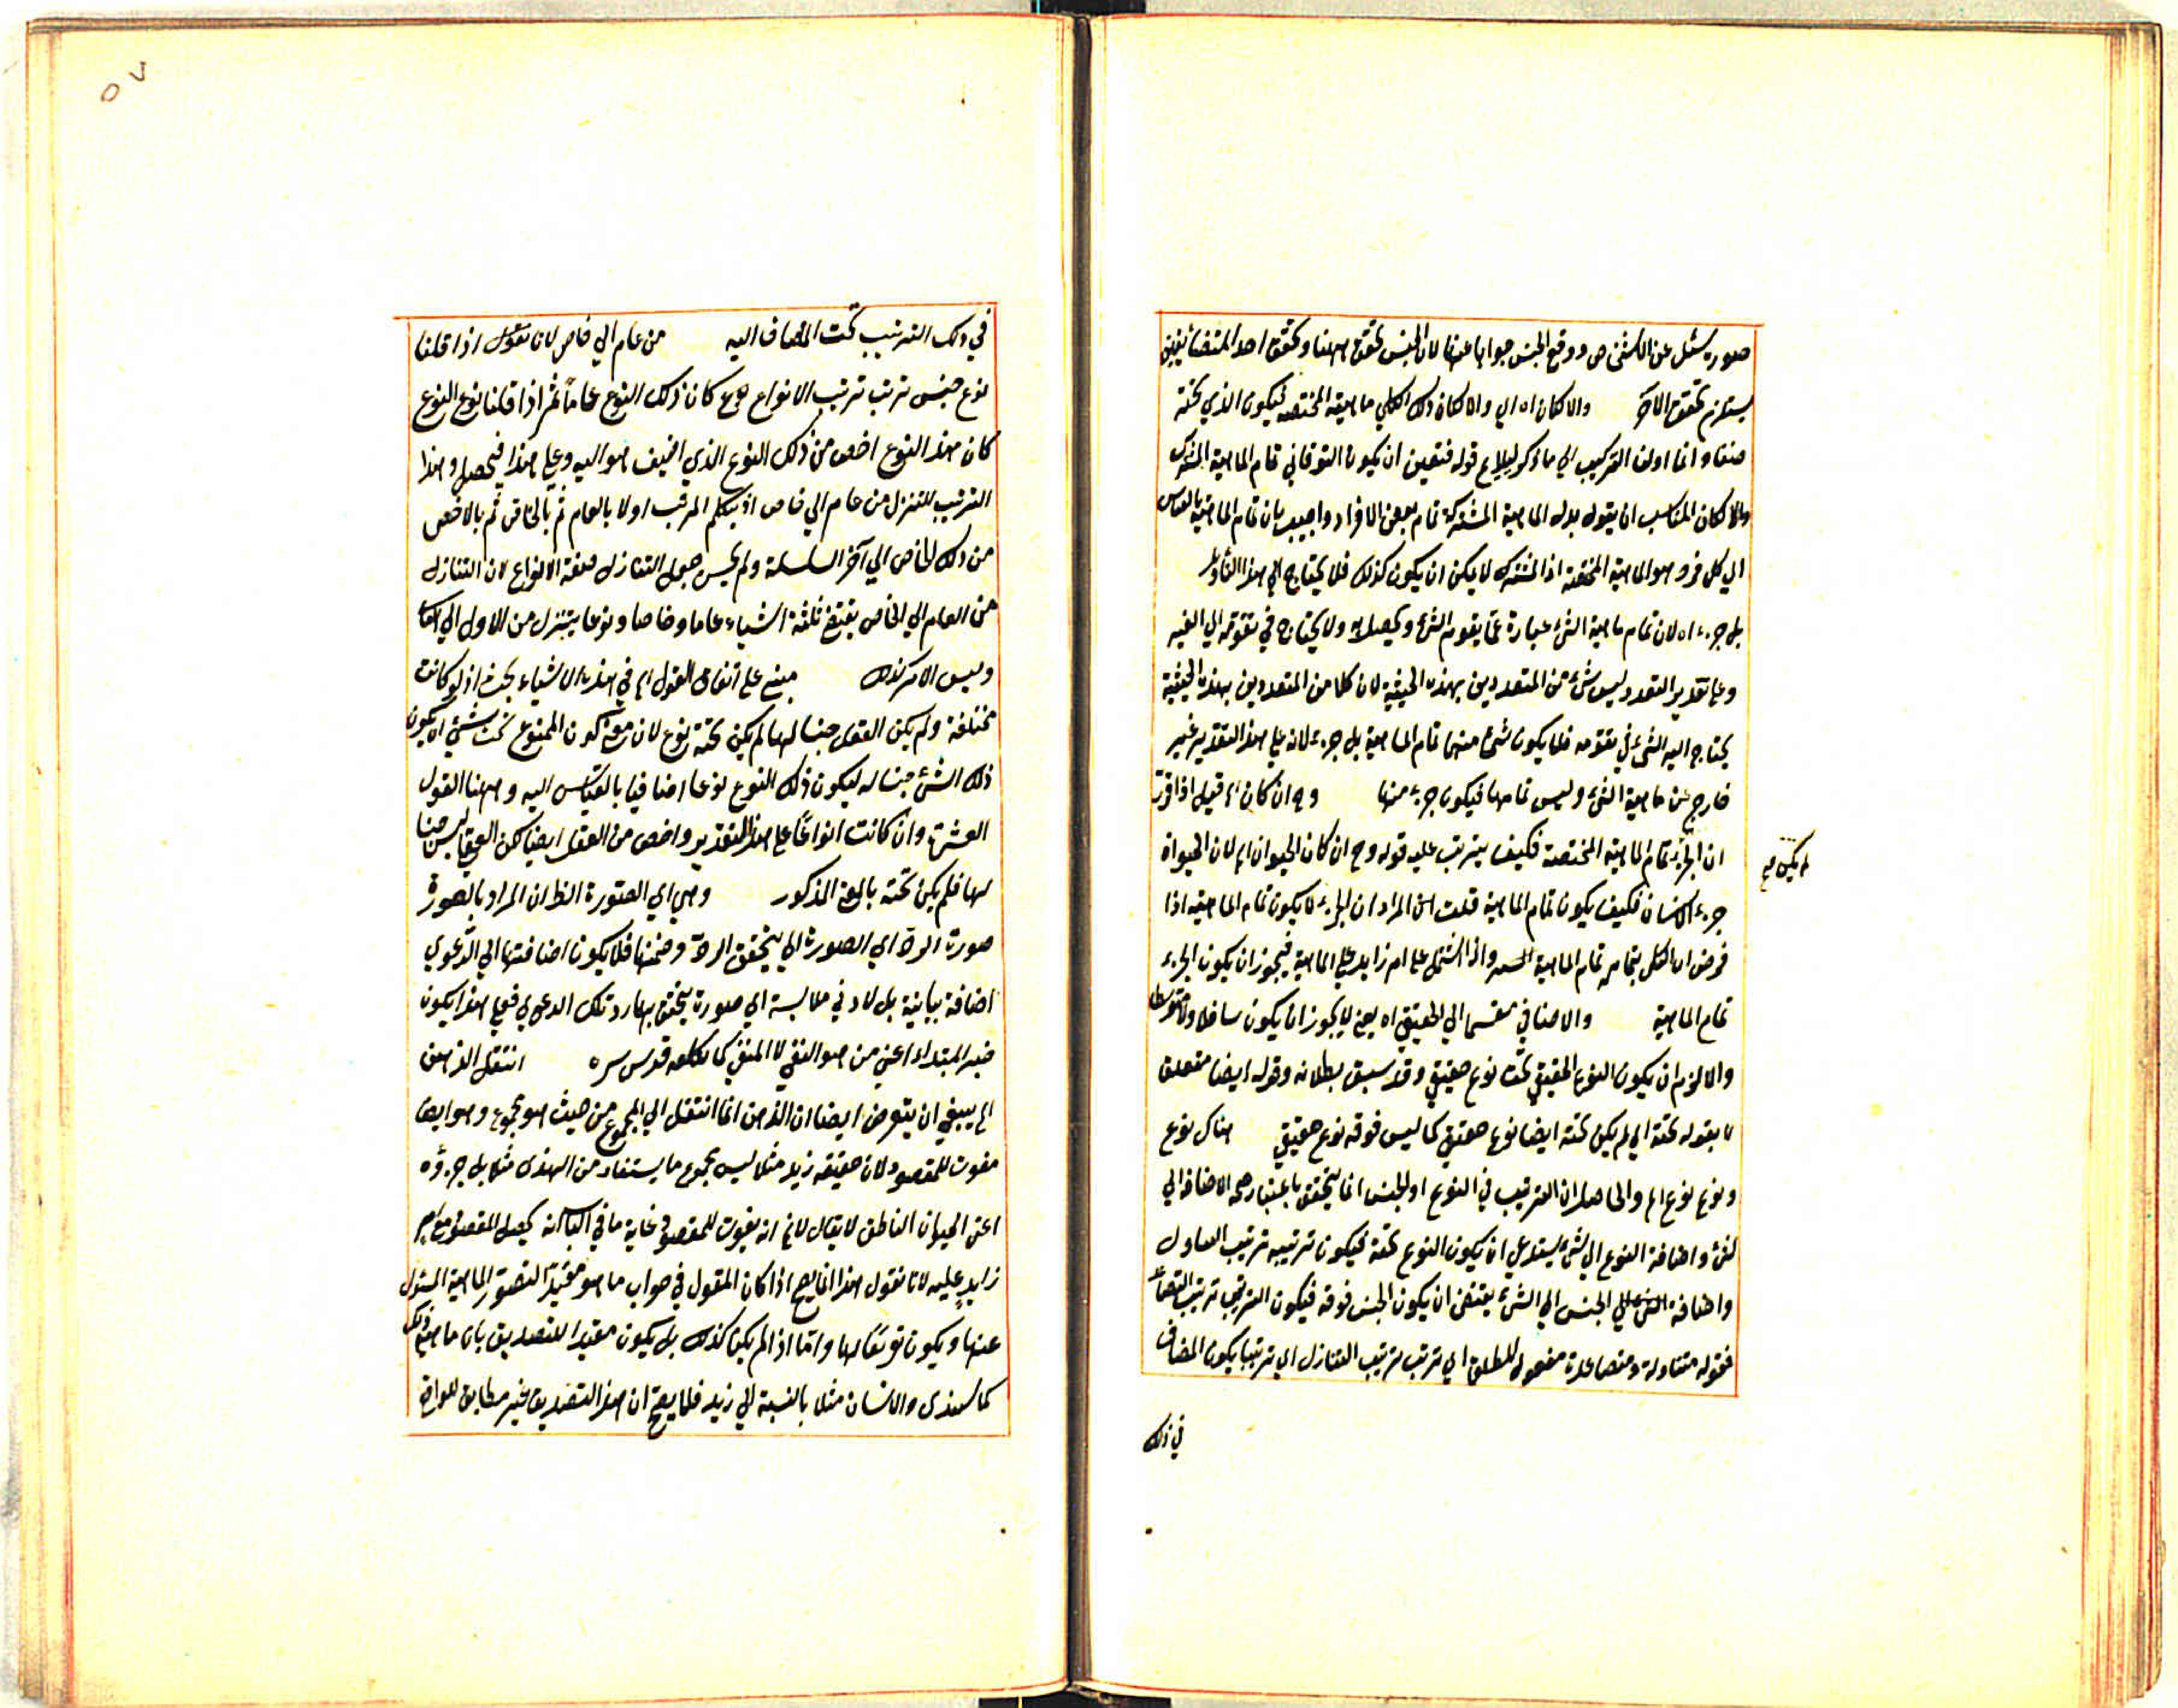 صورة سئل عن الاشخاص ووقع الجنس جوابا عنها لان الجنس تحقق ههنا وتحقق احد المتضائفين
يستلزم تحقق الآخر والا كان اه اي والا لكان ذلك الكلي ماهيته المختصة فيكون الذي تحته
صنفا وانما اولنا التركيب الي ما ذكر ليلايم قوله فتعين ان يكون الفوقاني تمام الماهية المشترك
والا لكان المناسب ان يقول بدله الماهية المشتركة تمام بعض الافراد واجيب بان تمام الماهية بالقياس
الي كل فرد هو الماهية المختصة اذ المشترك لا يمكن ان يكون كذلك فلا يحتاج الي هذا التأويل
بل جزء اه لان تمام ماهية الشئ عبارة عما يقوم الشئ ويحصله ولا يحتاج في تقومه الي الغير
وعلي تقدير التعدد ليس شئ من المتعددين بهذه الحيثية لان كلا من المتعددين بهذه الحيثية
يحتاج اليه الشئ في تقومه فلا يكون شئ منهما تمام الماهية بل جزء لانه علي هذا التقدير غير
خارج عن ماهية الشئ وليس تمامها فيكون جزء منها وح ان كان اه قيل اذا قرر
ان الجزء تمام الماهية المختصة فكيف يترتب عليه قوله وح ان كان الحيوان اه لان الحيوان
لم يكن صح
جزء الانسان فكيف يكون تمام الماهية قلت المراد ان الجزء لا يكون تمام الماهية اذا
فرض ان الكل بتمامه تمام الماهية واذا اشتمل علي امر زايد علي الماهية فيجوز ان يكون الجزء
تمام الماهية والاضافي مقسما الي الحقيقي اه يعني لا يجوز ان يكون سافلا ولا متوسطا
والا لزم ان يكون النوع الحقيقي تحت نوع حقيقي وقد سبق بطلانه وقوله ايضا متعلق
لا بقوله تحته اي لم يكن تحته ايضا نوع حقيقي كما ليس فوقه نوع حقيقي هناك نوع
ونوع نوع اه والحاصل ان الترتيب في النوع او الجنس انما يتحقق باعتبار الاضافة الي
شئ واضافة النوع الي شئ يستدعي ان يكون النوع تحته فيكون ترتيبه ترتيب التنازل
واضافة الجنس الي الشئ يقتضي ان يكون الجنس فوقه فيكون الترتيب ترتيب التصاعد
فقوله متنازلة ومتصاعدة مفعول المطلق اي ترتب ترتيب التنازل اي ترتيبا يكون المضاف
في ذلك
٥٧
في ذلك الترتيب تحت المضاف اليه من عام الي خاص لانا نقول اذا قلنا
نوع جنس ترتب ترتيب الانواع كان ذلك النوع عاما ثم اذا قلنا نوع النوع
كان هذا النوع اخص من ذلك النوع الذي اضيف هو اليه وعلي هذا فيحصل وهذا
الترتيب للتنزل من عام الي خاص اذ يتكلم المرتب اولا بالعام ثم بالخاص ثم بالاخص
من ذلك الخاص الي آخر السلسلة ولم يحسن جعل التنازل صفة الانواع لان التنازل
من العام الي الخاص يقتضي ثلثة اشياء عاما وخاصا ونوعا يتنزل من الاول الي الثاني
وليس الامر كذلك مبني علي اتفاق العقول اه في هذه الاشياء بحث اذ لو كانت
مختلفة ولم يكن العقل جنسا لها لم يكن تحته نوع لان معني كون النوع تحت شئ ان يكون
ذلك الشئ جنسا له ليكون ذلك النوع نوعا اضافيا بالقياس اليه وههنا العقول
العشرة وان كانت انواعا علي هذا التقدير واخص من العقل ايضا لكن العقل ليس جنسا
لها فلم يكن تحته بالمعني المذكور وهي اي الصورة الظ ان المراد بالصورة
صورة الرد اي الصورة التي يتحقق الرد وضمنها فلا يكون اضافتها الي الدعوي
اضافة بيانية بل لادني ملابسة اي صورة يتحقق بها رد تلك الدعوي فعلي هذا يكون
خبر المبتداء اعني من هو النفي لا المنفي كما تكلفه قدس سره انتقل الذهن
اه ينبغي ان يتعرض ايضا ان الذهن انما انتقل الي المجموع من حيث هو مجموع وهو ايضا
مفوت للمقصود لان حقيقة زيد مثلا ليس مجموع ما يستفاد من الهندي مثلا بل جزؤه
اعني الحيوان الناطق لا يقال لا نم انه يفوت للمقصود غاية ما في الباب انه يحصل المقصود مع امر
زايد عليه لانا نقول هذا انما يصح اذا كان المقول في جواب ما هو مفيدا لتصور الماهية المسئول
عنها ويكون تعريفا لها واما اذا لم يكن كذلك بل يكون مفيدا للتصديق بان ماهيته ذلك
كالهندي والانسان مثلا بالنسبة الي زيد فلا يصح ان هذا التصديق غير مطابق للواقع